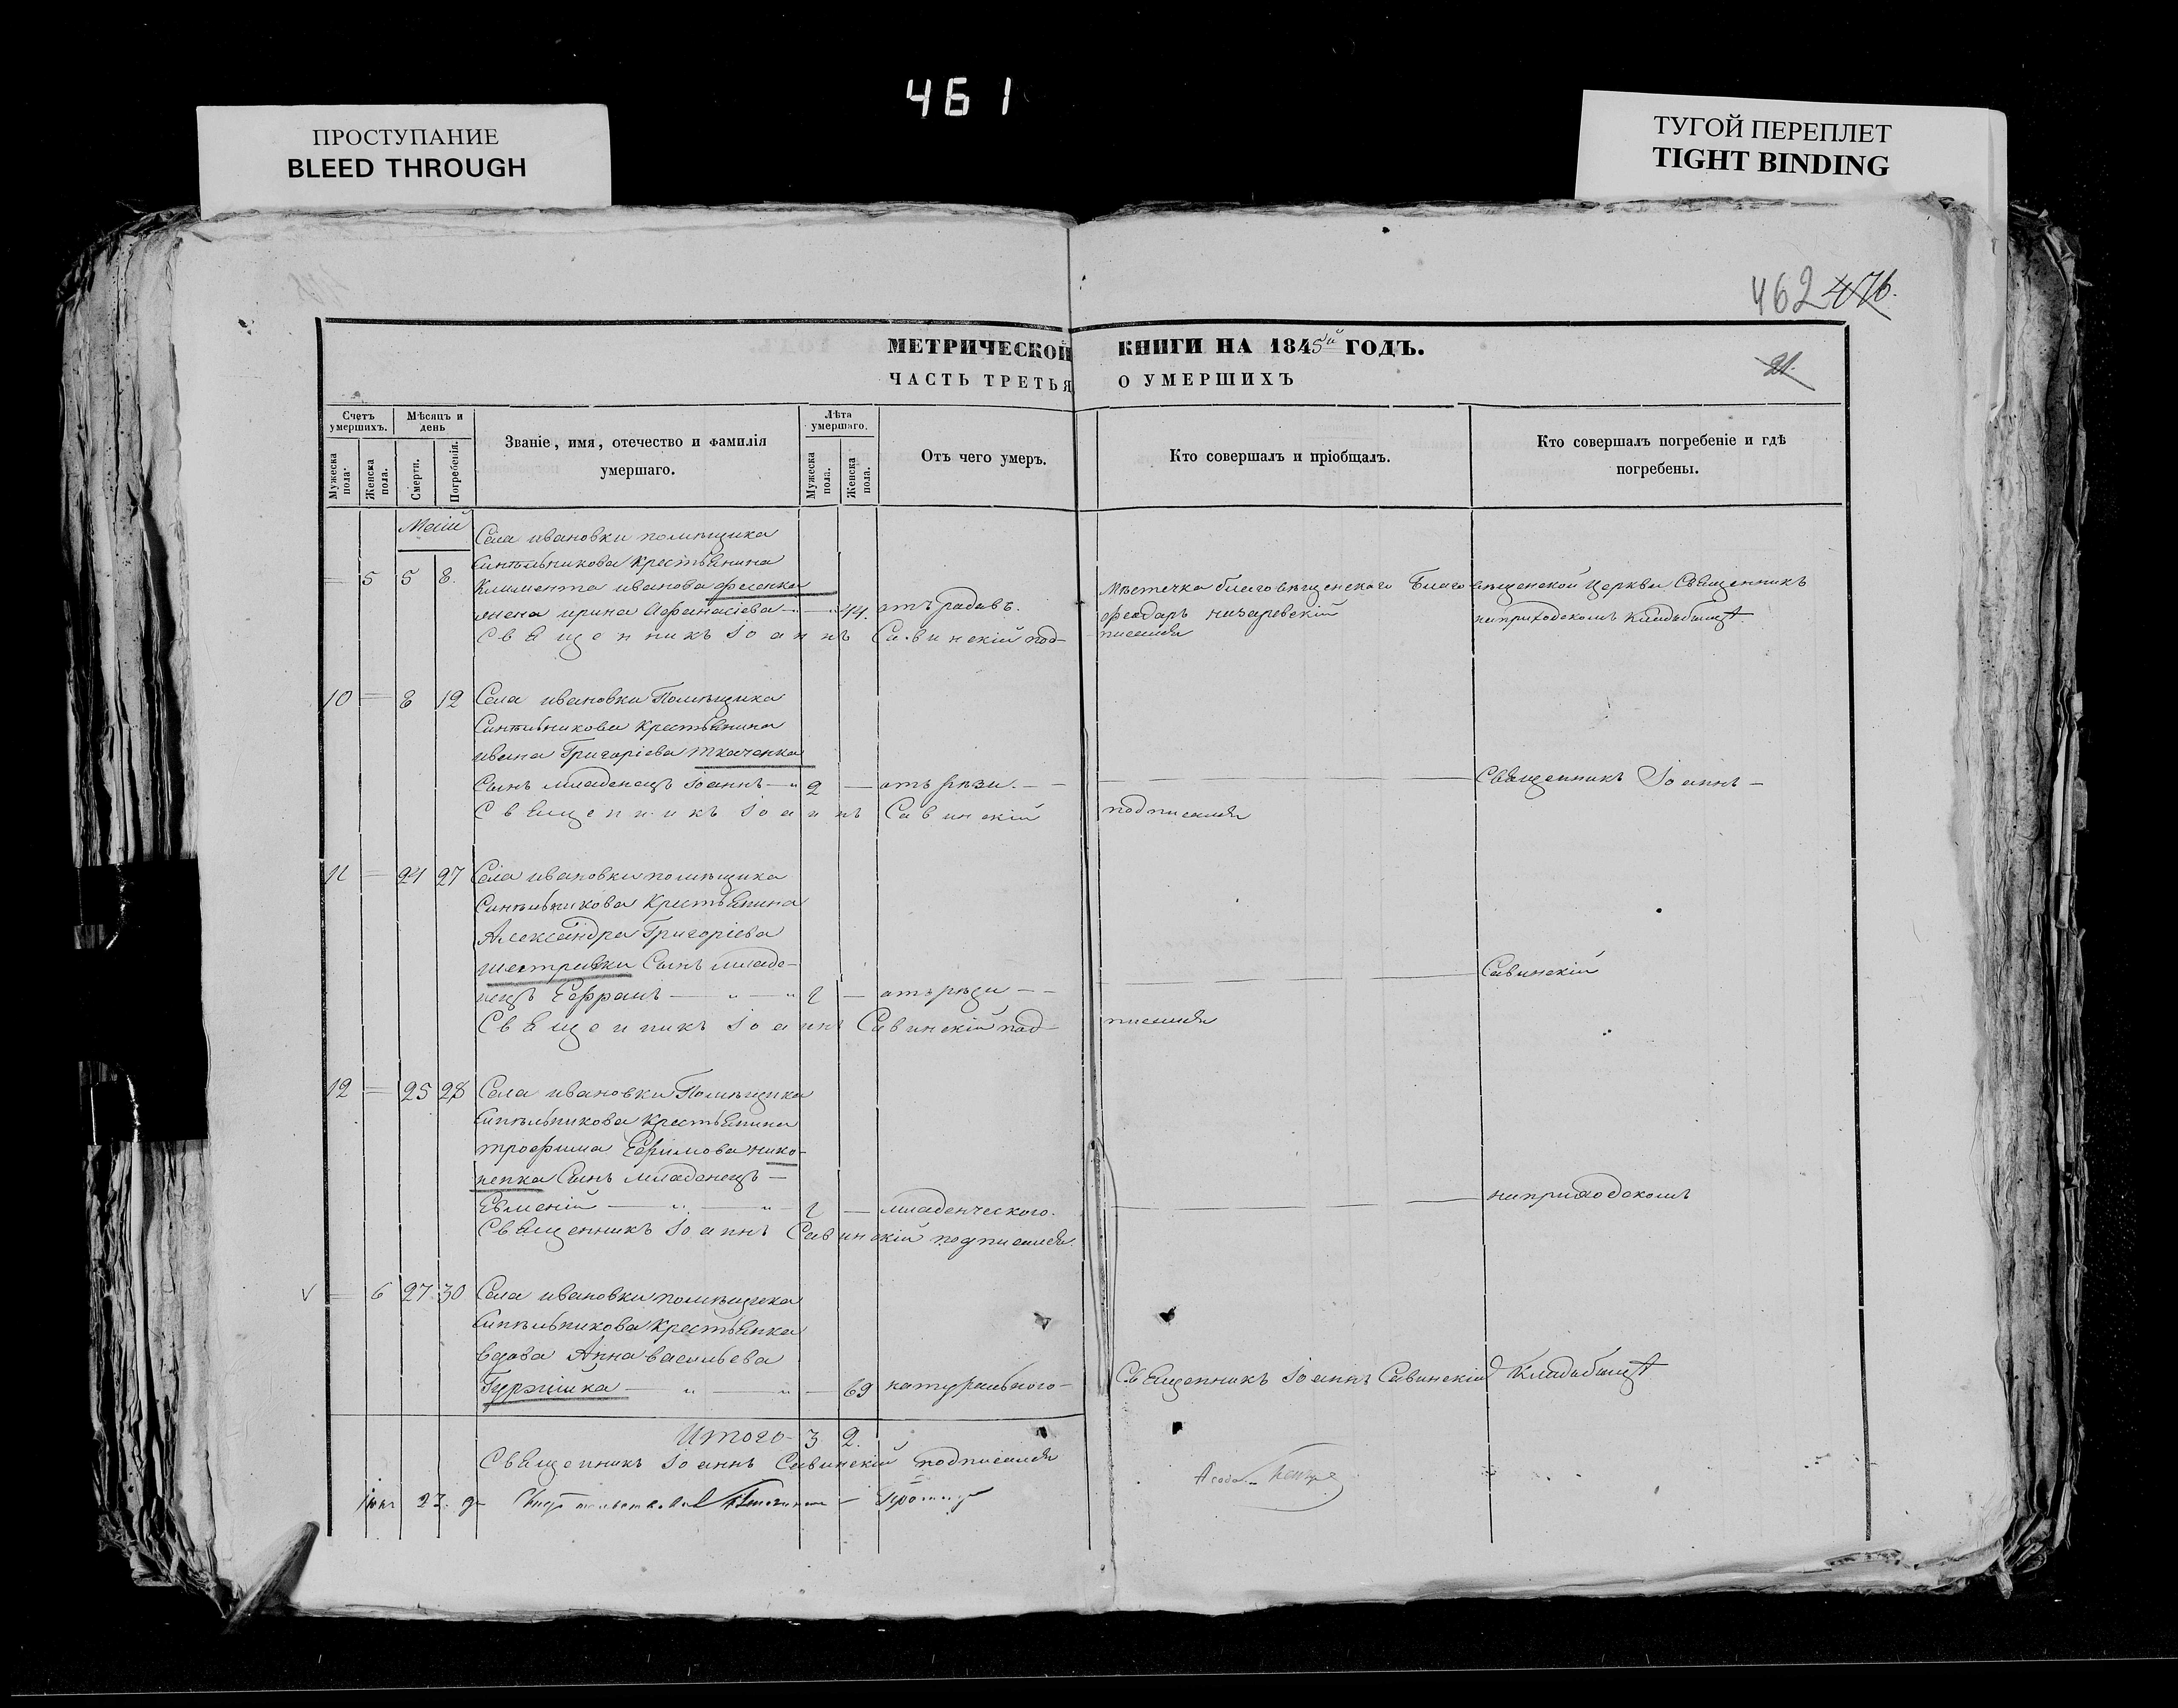 461
ПРОСТУПАНИЕ
BLEED THROUGH
ТУГОЙ ПЕРЕПЛЕТ
TIGHT BINDING
462 476.
МЕТРИЧЕСКОЙ КНИГИ НА 1845й ГОДЪ.
ЧАСТЬ ТРЕТЬЯ О УМЕРШИХЪ
21.
Счетъ умершихъ.
Мужеска пола.
Женска пола.
Мѣсяцъ и день
Смерти.
Погребенія.
Званіе, имя, отечество и фамилія
умершаго.
Лѣта умершаго.
Мужеска пола.
Женска пола.
Отъ чего умеръ.
Кто совершалъ и пріобщалъ.
Кто совершалъ погребеніе и гдѣ
погребены.
Маій
Села ивановки помѣщика
Синѣльникова Крестьянина
5 5 8. Климента иванова фесенка
жена ирина Афанасіева — 44. отъ родовъ.
Мѣстечка благовѣщенского Благовѣщенской Церкви Священникъ
феодоръ назаревскій на приходскомъ Кладбищѣ
Священникъ Іоаннъ Савинскій подписался
10 — 8 12 Села ивановки Помѣщика
Синѣльникова Крестьянина
ивана Григоріева Ткаченка
Сынъ младенецъ Іоаннъ — 2 — отъ рѣзи. — Священникъ Іоаннъ —
Священникъ Іоаннъ Савинскій подписался
11 — 24 27 Села ивановки помѣщика
Синѣльникова Крестьянина
Александра Григоріева
шестривки Сынъ младе-
нецъ Ефремъ — — отъ рѣзи — Савинскій
Священникъ Іоаннъ Савинскій подписался
12 — 25 28 Села ивановки Помѣщика
Синѣльникова Крестьянина
трофима Ефимова нико-
ненка Сынъ младенецъ —
Евменій — — младенческого. — на приходскомъ
Священникъ Іоаннъ Савинскій подписался.
√ — 6 27 30 Села ивановки помѣщика
Синѣльникова Крестьянка
вдова Анна васильева
Гуржійка — 69 натурального — Священникъ Іоаннъ Савинскій Кладбищѣ
Итого 3 2.
Священникъ Іоаннъ Савинскій подписался